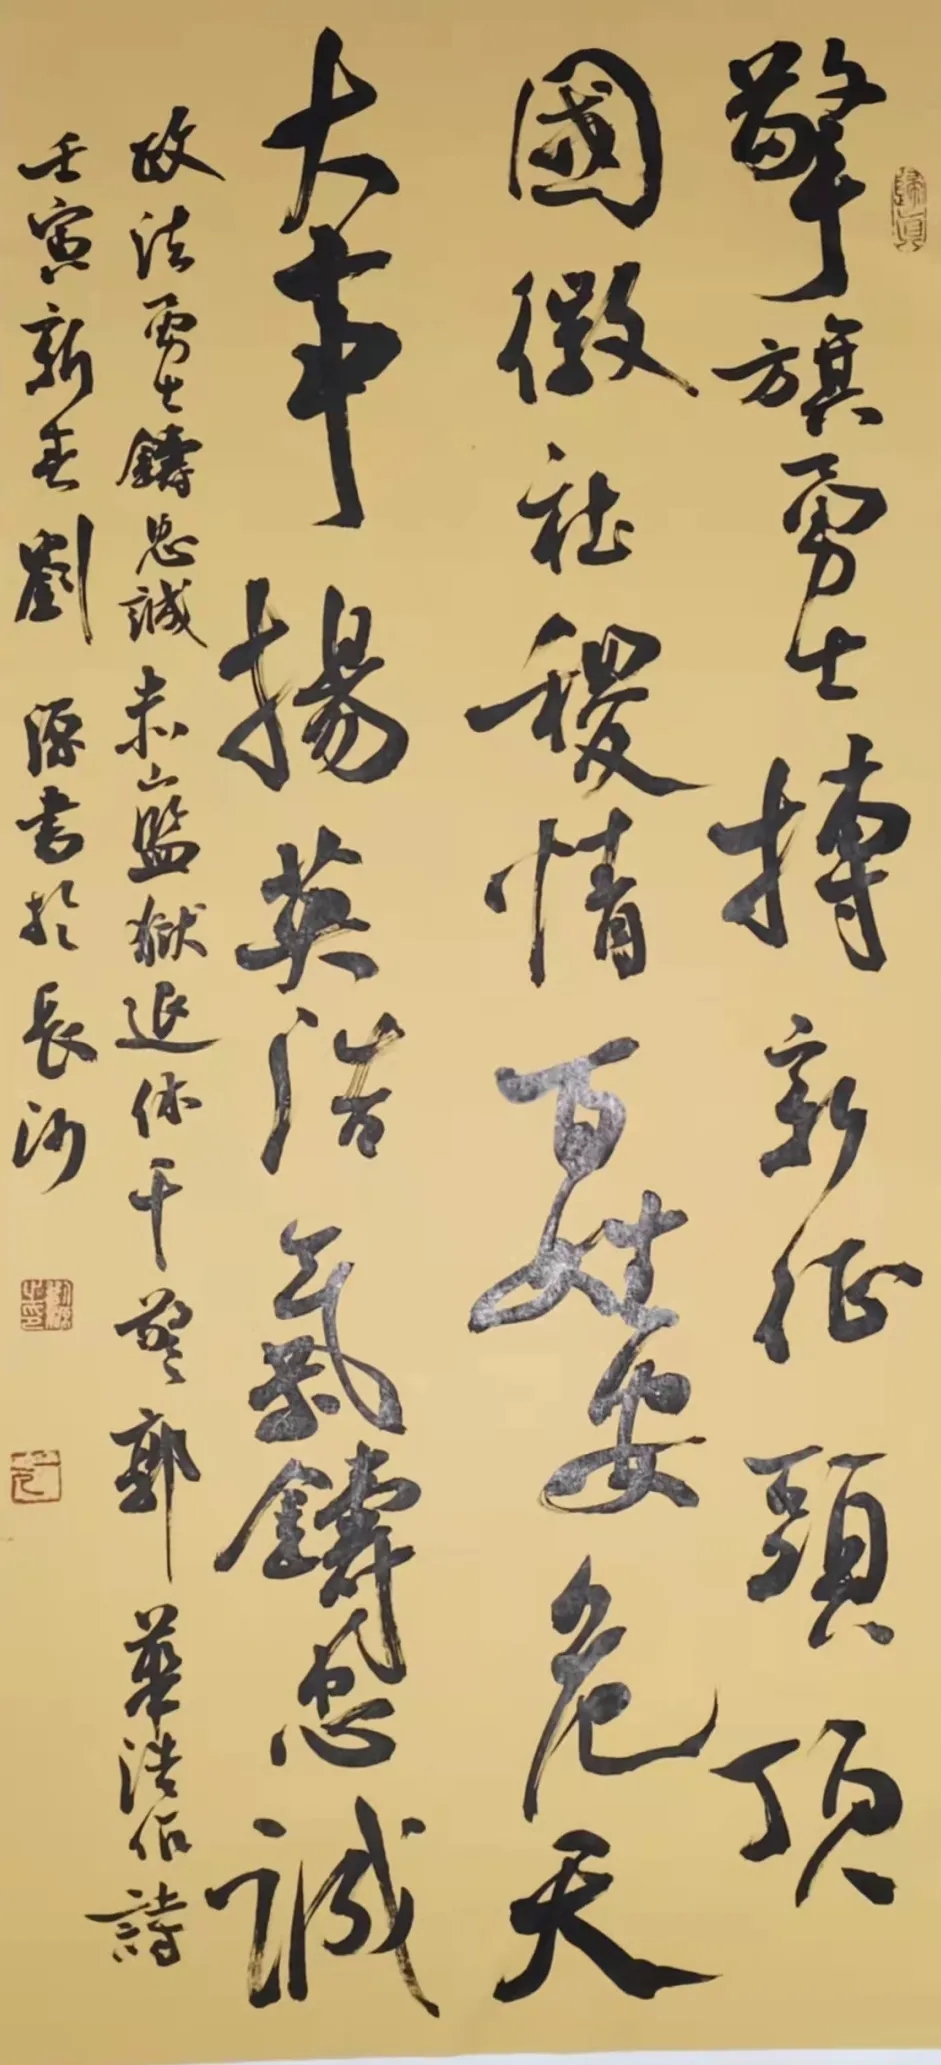 擎旗勇士搏新征頭頂
國徽社稷情百姓安危天
大事揚英浩氣鑄忠誠
政法勇士鑄忠誠赤山監獄退休干警郭華浩作詩
壬寅新春劉源書於長沙